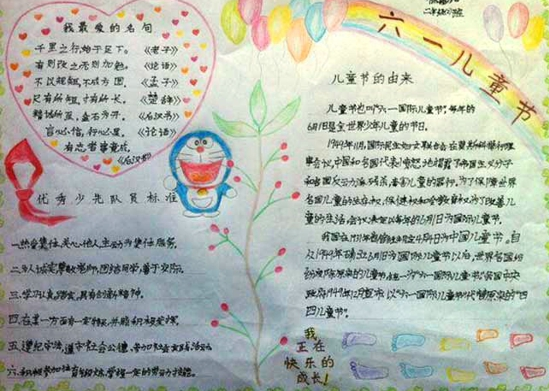 二年级
六一儿童节
我最爱的名句
千里之行,始于足下。 《老子》
有则改之,无则加勉。 《论语》
不以规矩,不成方圆。 《孟子》
尺有所短,寸有所长。 《楚辞》
精诚所至,金石为开。 《后汉书》
言必信,行必果。 《论语》
有志者事竟成。
《后汉书》
优秀少先队员标准
一.热爱集体,关心他人,主动为集体服务。
团结同学,善于交际。
具有创新精神。
四.在某一方面有一定特长,并
五.遵纪守法,遵守社会公德,
六.积极参加体育锻炼,
儿童节的由来
儿童节也叫“六一国际儿童节”,每年的
6月1日是全世界少年儿童的节日。
1949年11月,国际民主妇女联合会在莫斯科举行理
事会议,中国和各国代表愤怒地揭露了帝国主义分子
和各国反动派残杀、毒害儿童的罪行。为了保障世界
各国儿童的生存权、保健权和受教育权,为了改善儿
童的生活,会议决定以每年的6月1日为国际儿童节。
我国在1931年 4月4日为中国儿童节。自
从1949年确立6月1日为国际儿童节以后,世界各国
原来的儿童节 “六一国际儿童节”。我国中央
政府1949年12月宣布,以“六一国际儿童节”代替原来的“四
四儿童节”。
我
正在
快乐的
成长!